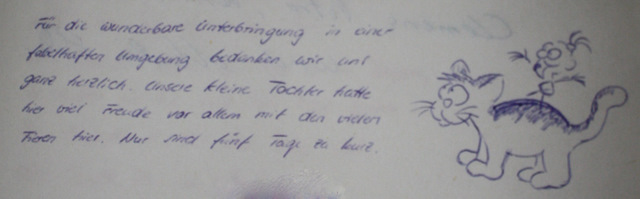 Für die wunderbare Unterbringung in einer
fabelhaften Umgebung bedanken wir uns
ganz herzlich. Unsere kleine Tochter hatte
hier viel Freude vor allem mit den vielen
Tieren hier. Nur sind fünf Tage zu kurz.